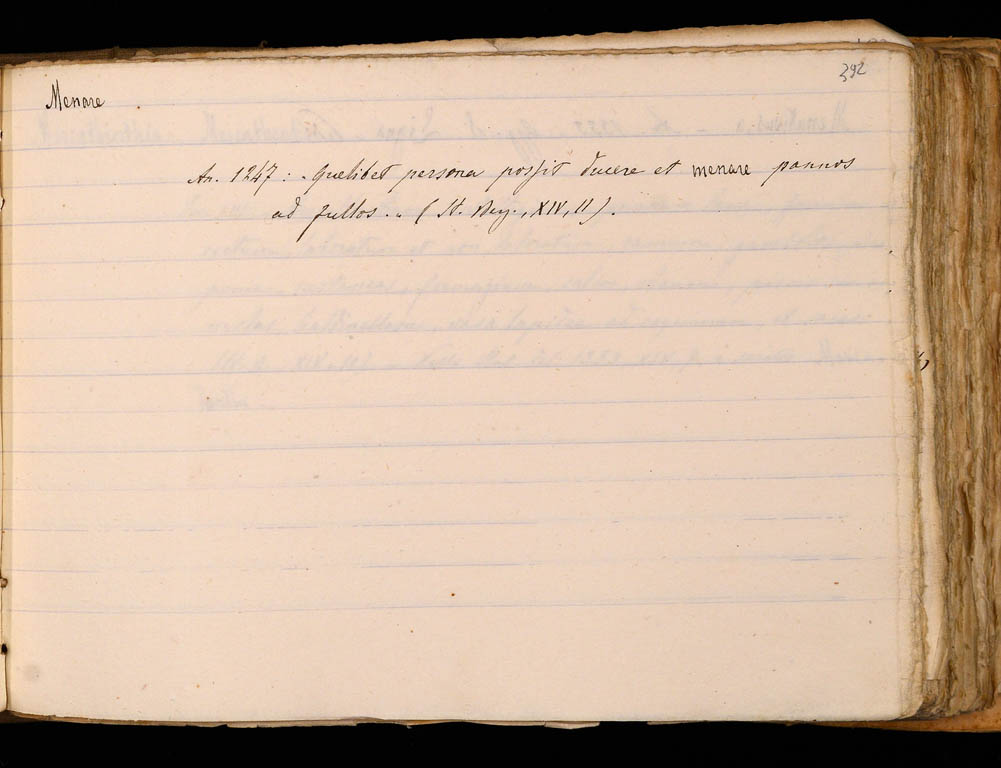 392
Menare
An. 1247: - Quelibet persona possit ducere et menare pannos
ad fullos.. (St. Bey., XIV, 11).